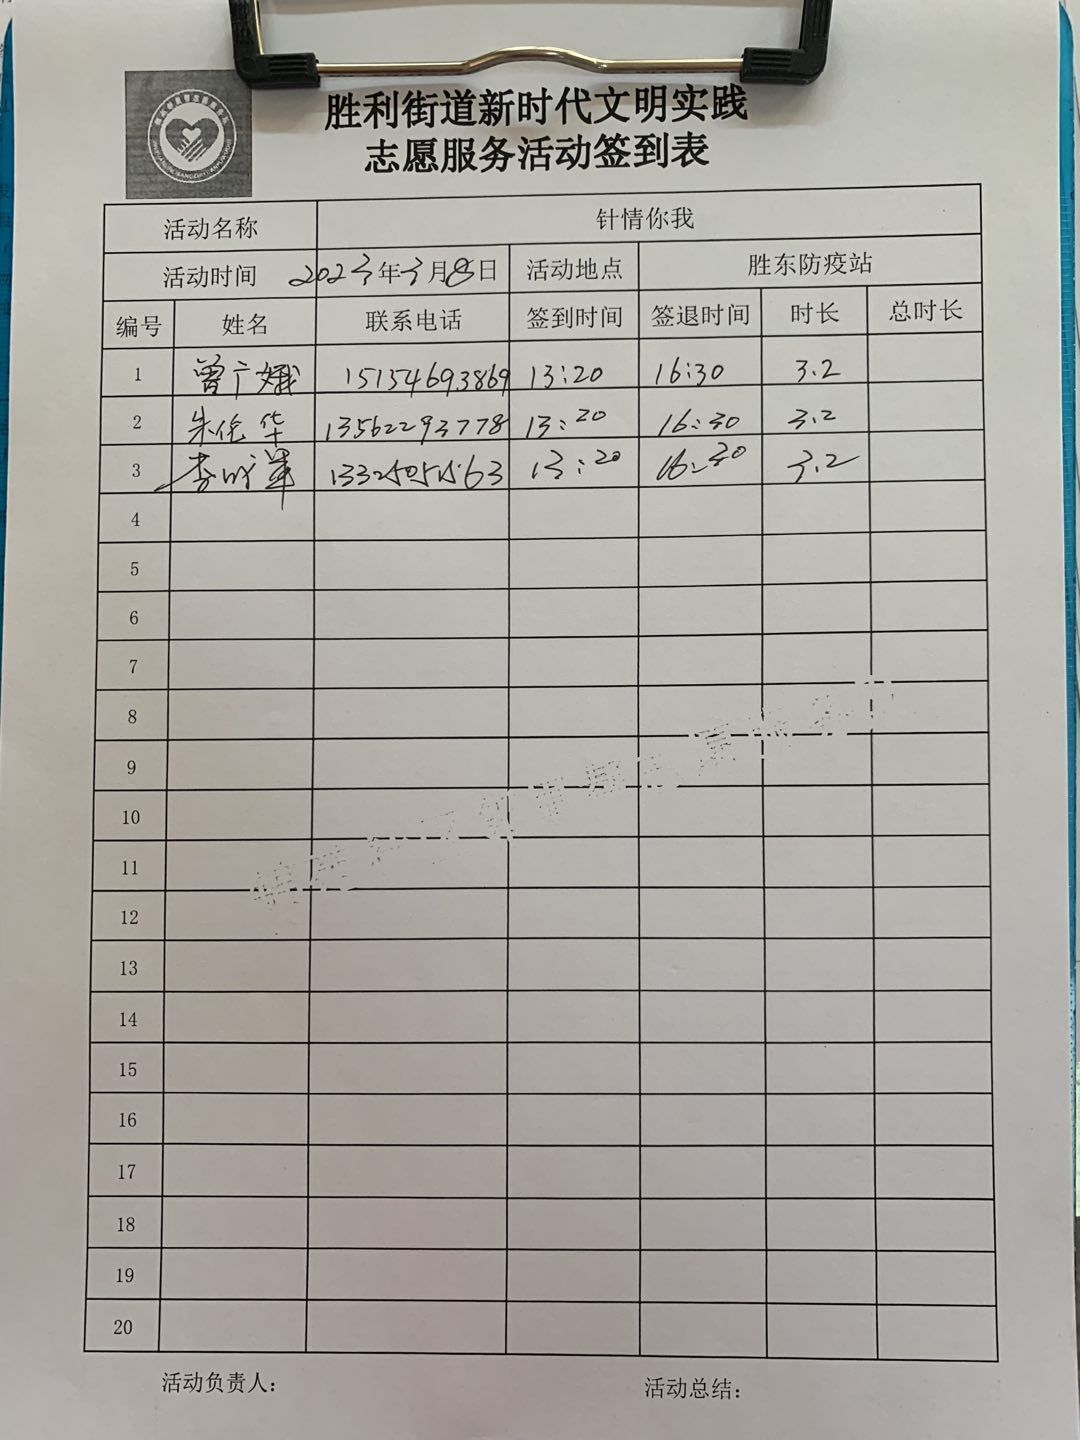 胜利街道新时代文明实践
志愿服务活动签到表
活动名称 针情你我
活动时间 2023年3月8日 活动地点 胜东防疫站
编号 姓名 联系电话 签到时间 签退时间 时长 总时长
1 曾广娥 15154693869 13:20 16:30 3.2
2 朱伦华 13562293778 13:20 16:30 3.2
3 13:20 16:30 3.2
4
5
6
7
8
9
10
11
12
13
14
15
16
17
18
19
20
活动负责人: 活动总结: